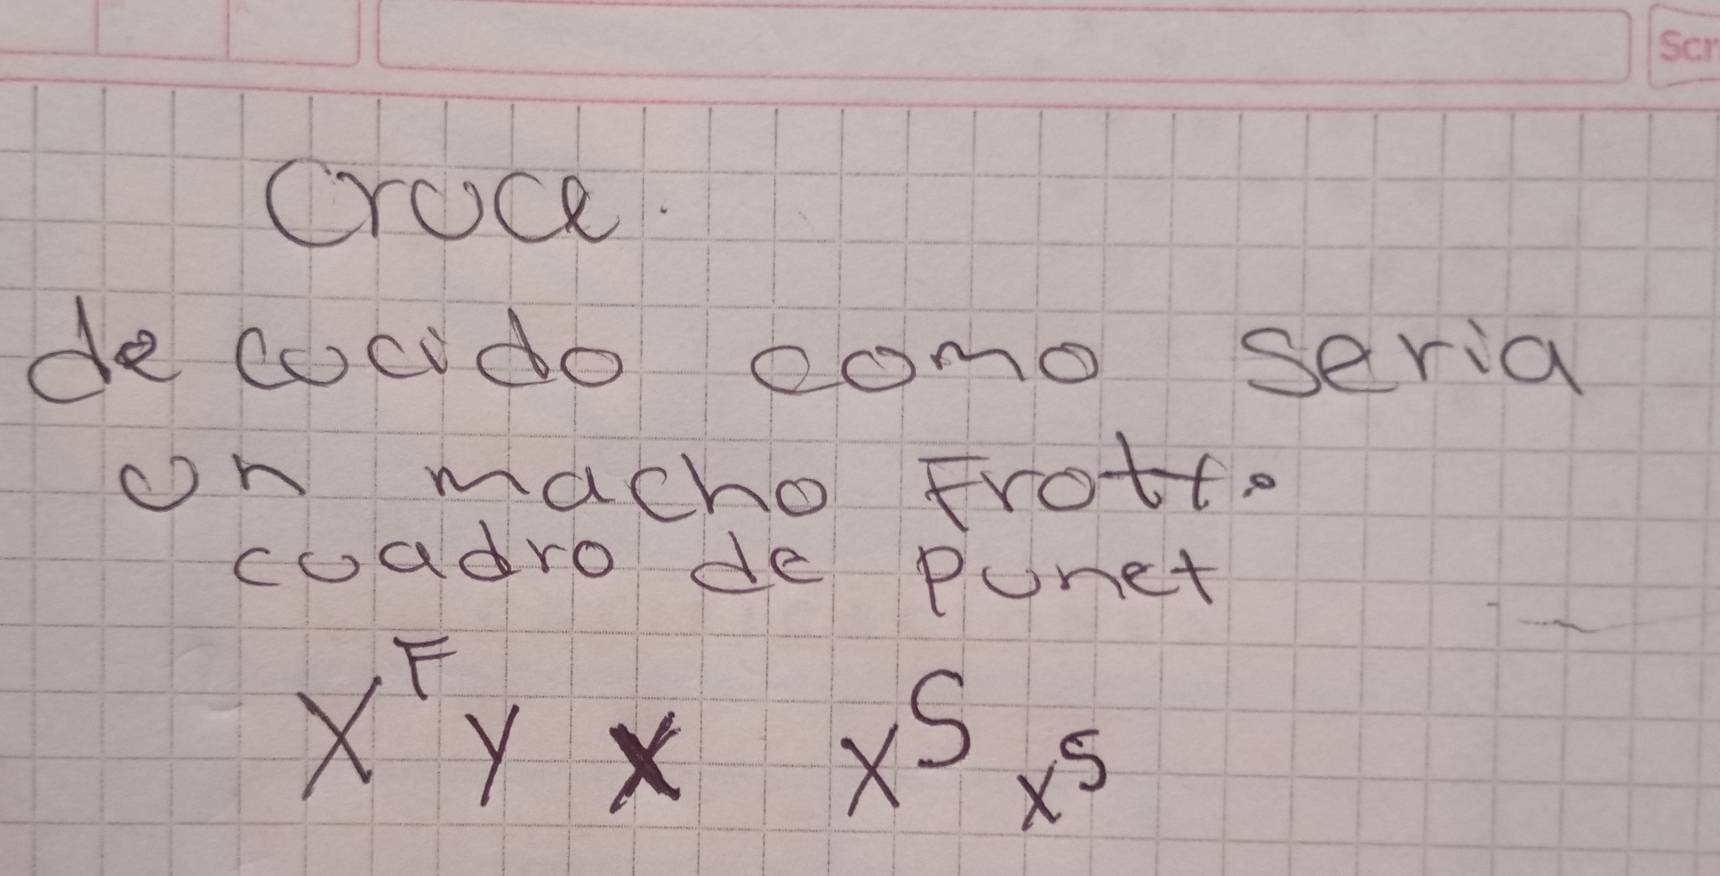 Scr
Cruce.
de cocido como seria
un macho Frott.
cuadro de Punet
X^F y x x^S x^s